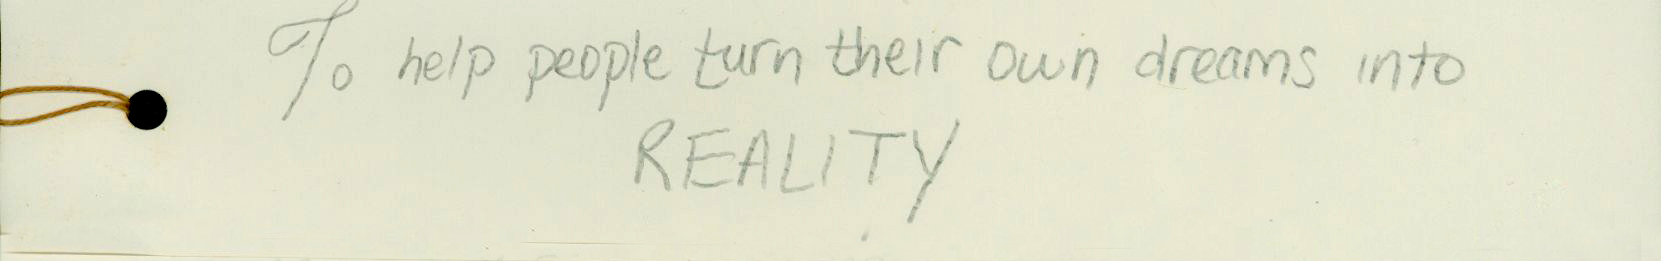 To help people turn their own dreams into
REALITY